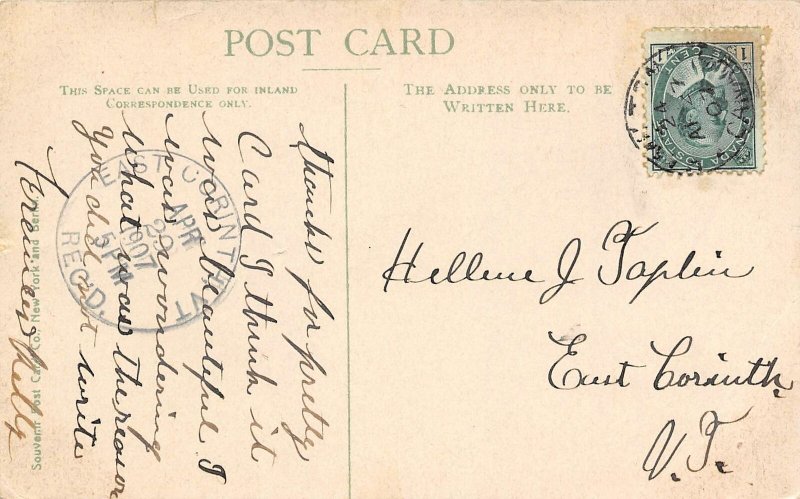 POST CARD
THIS SPACE CAN BE USED FOR INLAND
CORRESPONDENCE ONLY.
THE ADDRESS ONLY TO BE
WRITTEN HERE.
thanks for pretty
Card I think it
was beautiful I
was wondering
what was the reason
you did not write
EAST CORINTH VT
APR
29
1907
5 PM
REC'D.
Souvenir Post Card Co., New York and Berlin.
Hellene J Taplin
East Corinth
V.T.
CANADA POSTAGE
ONE CENT
1